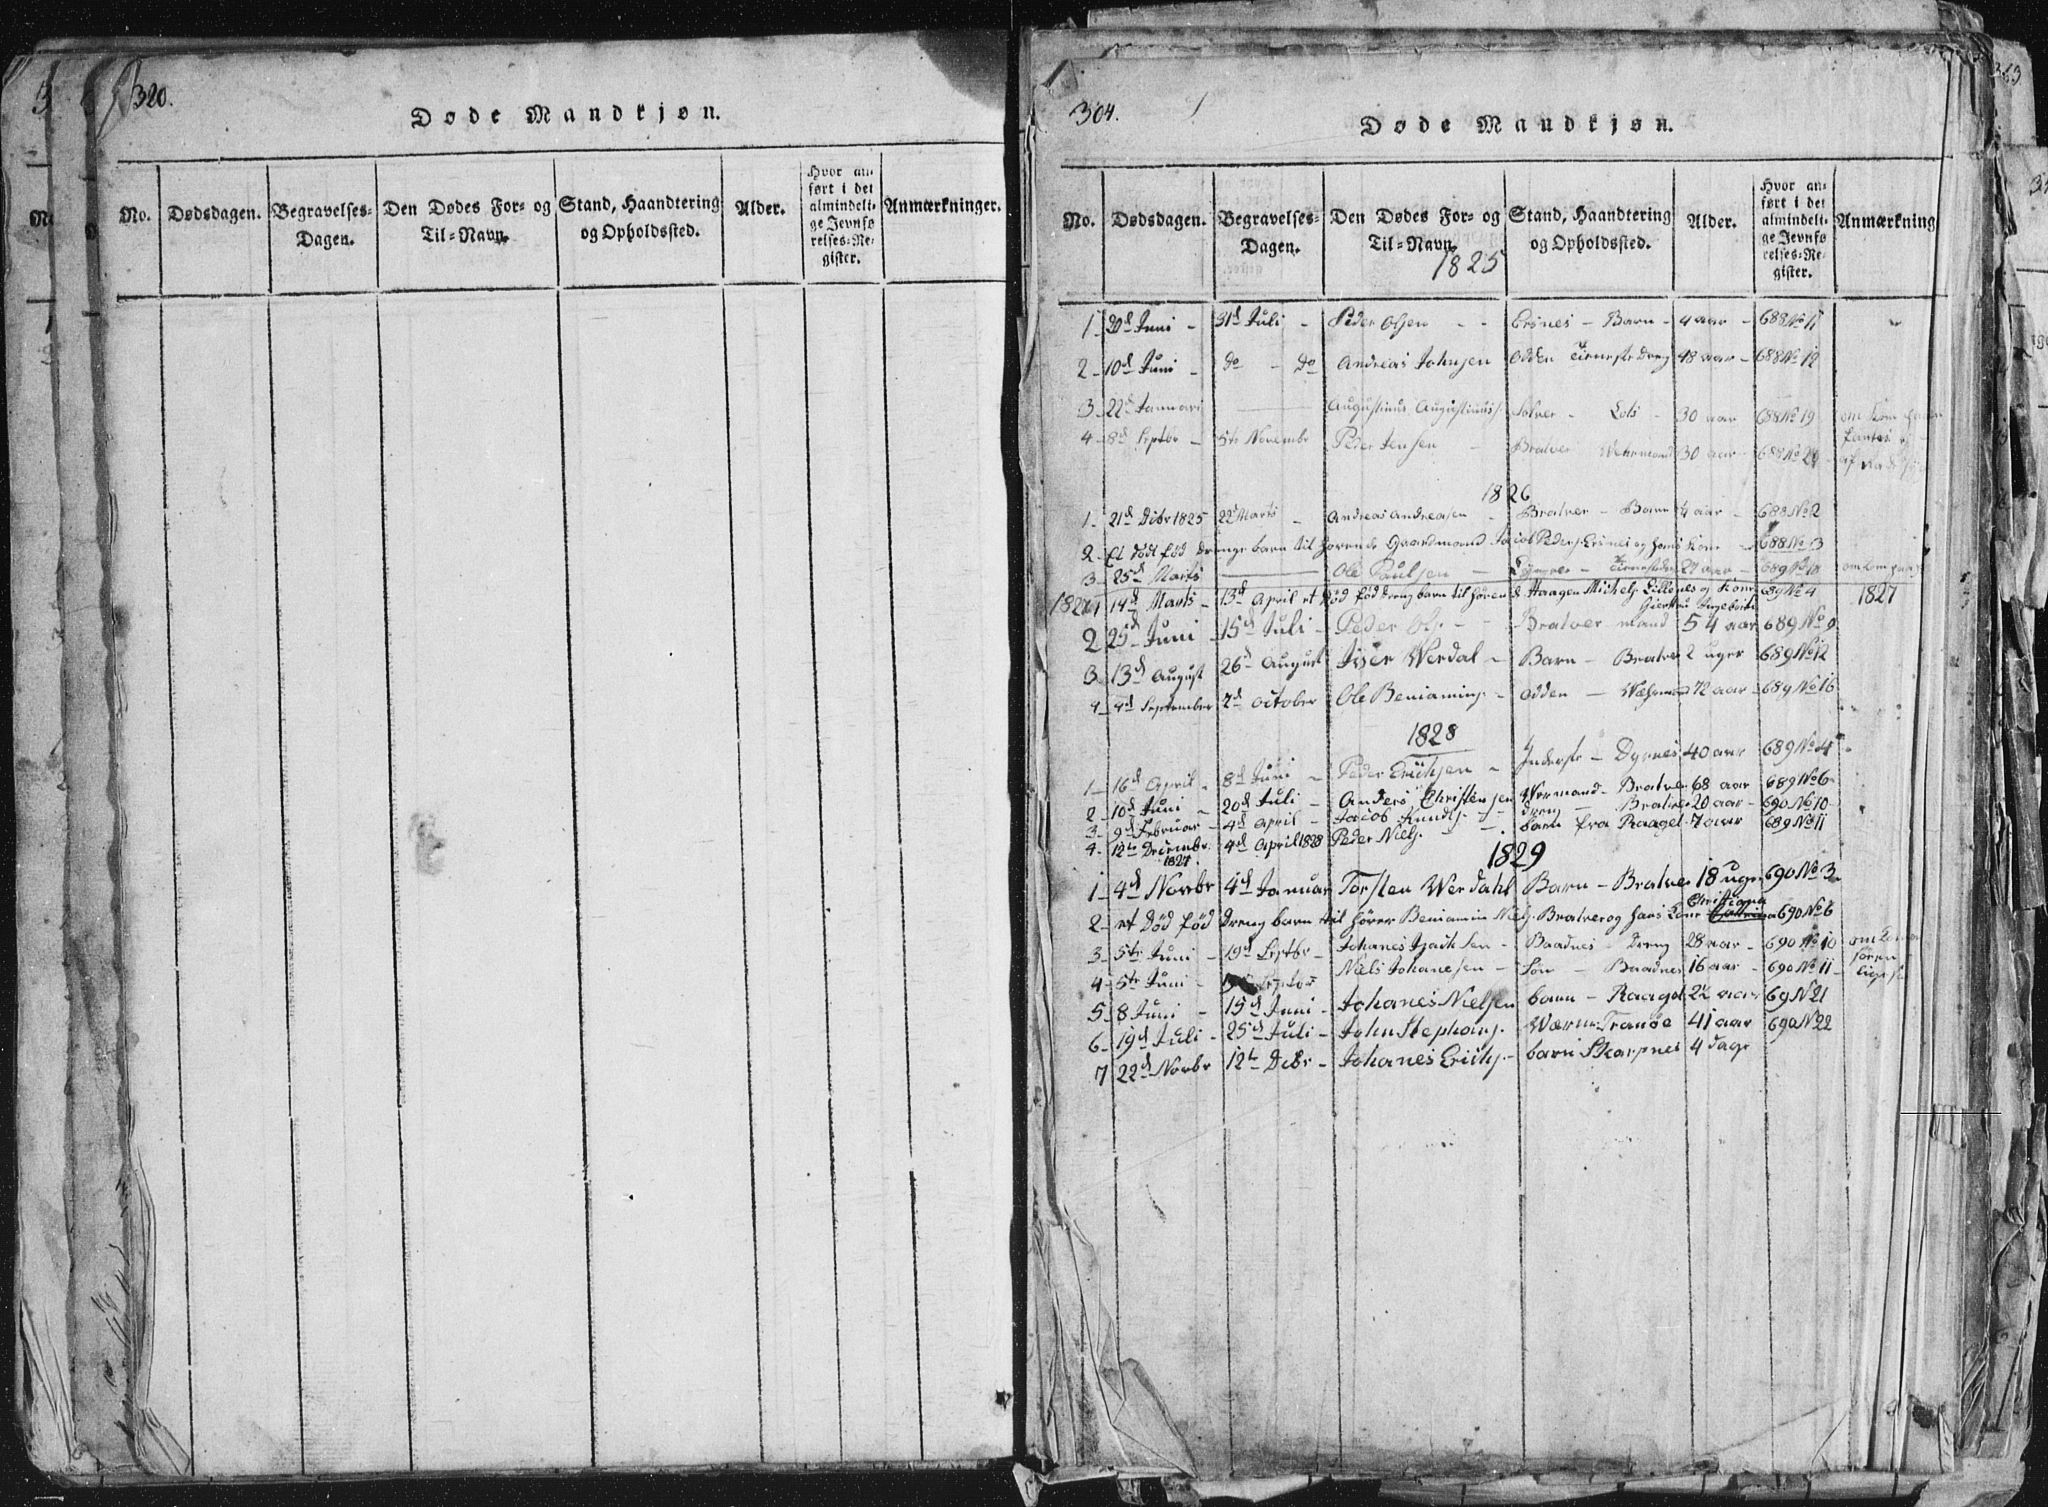 320.
Døde Mandkjøn.
No.
Dødsdagen.
Begravelses-
Dagen.
Den Dødes For- og
Til-Navn.
Stand, Haandtering
og Opholdssted.
Alder.
Hvor an-
ført i det
almindeli-
ge Jevnfø
relses-Re-
gister.
Anmærkninger.
304.
Døde Mandkjøn.
No.
Dødsdagen.
Begravelses-
Dagen.
Den Dødes For- og
Til-Navn.
Stand, Haandtering
og Opholdssted.
Alder.
Hvor an-
ført i det
almindeli-
ge Jevnfø
relses-Re-
gister.
Anmærkning
1825
1 - 20d Juni - 31d Juli - Peder Olsen - - Ersnes - Barn - 4 aar - 688 No 11
2 - 10d Juni - Do - Do Andreas Johnsen Odden Tieneste Dreng 48 aar - 688 No 12
3 22d Januari Augustinus Augustinuss. Solver - Lots - 30 aar 688 No 19 om kom
4 - 8d Septbr - 5te Novembr Peder Jensen - Bratver 30 aar - 688 No 20
1826
1 - 21d Dibr 1825 22d Marts - Andreas Andreasen - Bratver - Barn 4 aar - 688 No 2
2 - Et död föd Drenge barn til hörende Gaardmand Jacob Peders. Ersnes og hans Kone - 688 No 3
3 - 25d Marts Ole Paulsen - - 689 No 10 omkom paa
1827 1 14d Marts - 13d April et död föd Dreng barn til hörend Haagen Michels. Lillenes og Kone 689 No 4 1827
Giertru Ingeborg
2 25d Juni - 15d Juli - Peder Ols. - - Bratver mand 54 aar 689 No 9
3 - 13d August 26d August Iver Werdal - Barn - Bratver 2 uger 689 No 12
4 - 4d September 7d October Ole Beniamins. - Odden - 72 aar - 689 No 16
1828
1 - 16d April - 8d Juni - Peder Erichsen - Inderste - Dyrnes 40 aar 689 No 4
2 - 10d Juni - 20d Juli - Anders Christensen Wermand - Bratver 68 aar 689 No 6
3 - 9d Februar - 4d April - Jacob Knuds. - Dreng - Bratver 20 aar - 690 No 10
4 - 12te Decembr. 4d April 1828 Peder Niels. - barn fra Raagel 7 aar 689 No 11
1827.
1829
1 - 4d Novbr 4d Januar Torsten Werdahl Barn - Bratver 18 uger 690 No 3
Christiana
2 - et Död föd Dreng barn til hörer Beniamin Niels. Bratver og hans Kone 690 No 6
3 - 5te Juni - 19d Septbr - Johanes - Baadnes - Dreng 28 aar - 690 No 10 om kom
sören
4 - 5te Juni - 19 Septbr Niels Johanesen - Sön - Baadnes 16 aar - 690 No 11 -
5 - 8 Juni - 15d Juni - Johanes Nielsen barn - Raagel 2½ aar 69 N 21
6 - 19d Juli - 25d Juli - John Stephans. Wærm: Tranöe 41 aar 690 N 22
7 22d Novbr 12te Dibr - Johanes Erichs. - barn Skarpnes 4 dage